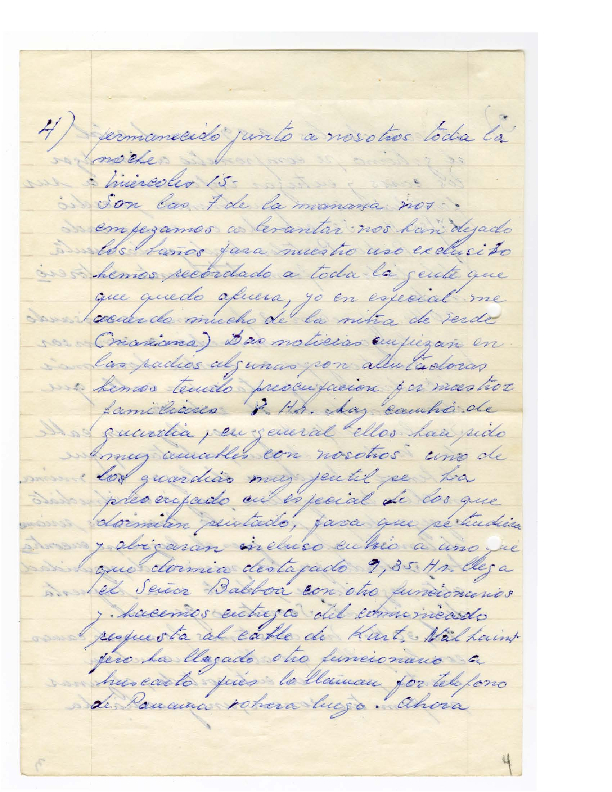 4) permanecido junto a nosotros toda la
noche
Miercoles 15-
Son las 7 de la mañana nos
empezamos a levantar nos han dejado
los baños para nuestro uso exclusivo
hemos recordado a toda la gente que
que quedo afuera, yo en especial me
acuerdo mucho de la niña de verde
(mañana) Las noticias empiezan en
las radios algunas son alentadoras
hemos tenido preocupacion por nuestros
familiares Hr. hay cambio de
guardia, en general ellos han sido
muy amables con nosotros uno de
los guardias muy jentil se ha
preocupado en especial de los que
dormian sentado, para que se
y abrigaran incluso cubrio a uno que
que dormia destapado 9,35 Hr. llega
el Señor Balboa con otro funcionarios
y hacemos entrega del comunicado
respuesta al cable de Kart.
pero ha llegado otro funcionario a
buscarlo pues lo llaman por telefono
de Panama volvera luego. Ahora
4